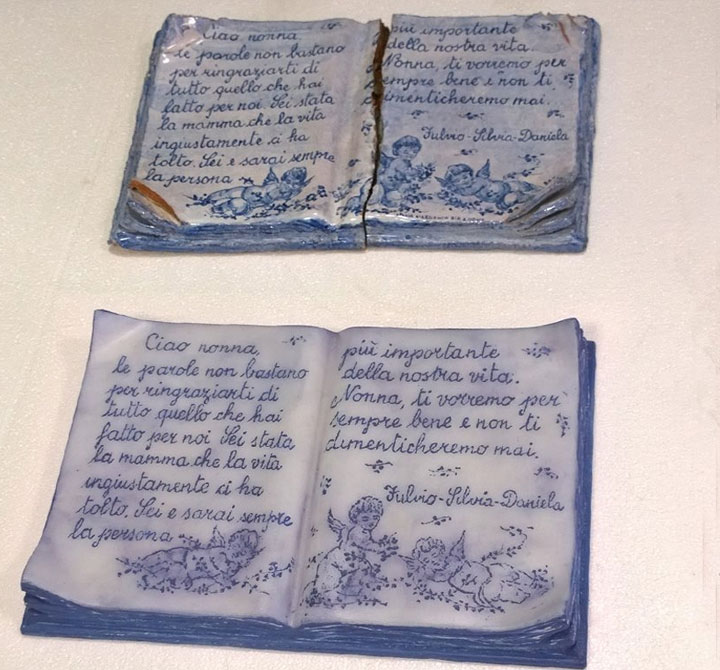 Ciao nonna,
le parole non bastano
per ringraziarti di
tutto quello che hai
fatto per noi. Sei stata
la mamma che la vita
ingiustamente ci ha
tolto. Sei e sarai sempre
la persona
più importante
della nostra vita.
Nonna, ti vorremo per
sempre bene e non ti
dimenticheremo mai.
Fulvio-Silvia-Daniela
Ciao nonna,
le parole non bastano
per ringraziarti di
tutto quello che hai
fatto per noi Sei stata
la mamma che la vita
ingiustamente ci ha
tolto. Sei e sarai sempre
la persona
più importante
della nostra vita.
Nonna, ti vorremo per
sempre bene e non ti
dimenticheremo mai.
Fulvio-Silvia-Daniela